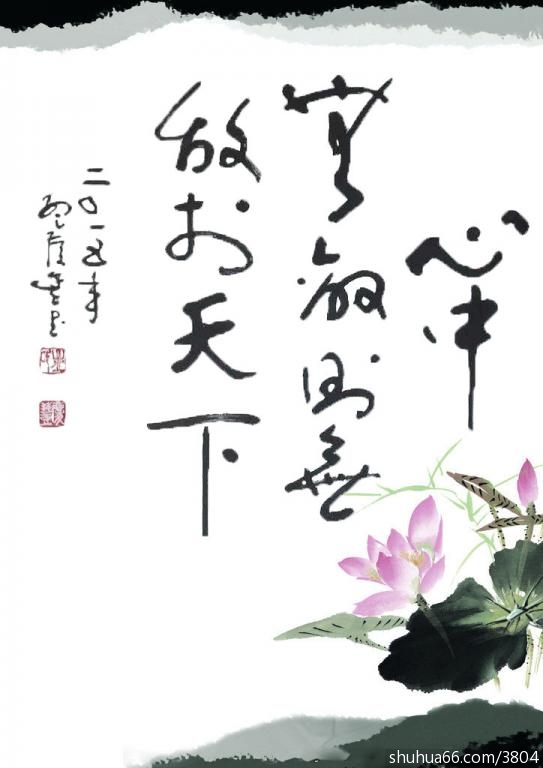 心中
無敵則無
敵於天下
二〇一五年
shuhua66.com/3804